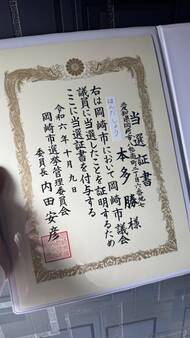 当選証書
本多勝様
右は岡崎市において岡崎市議会
議員に当選したことを証明するため
ここに当選証書を付与する
令和六年十月九日
岡崎市選挙管理委員会
委員長 内田安彦